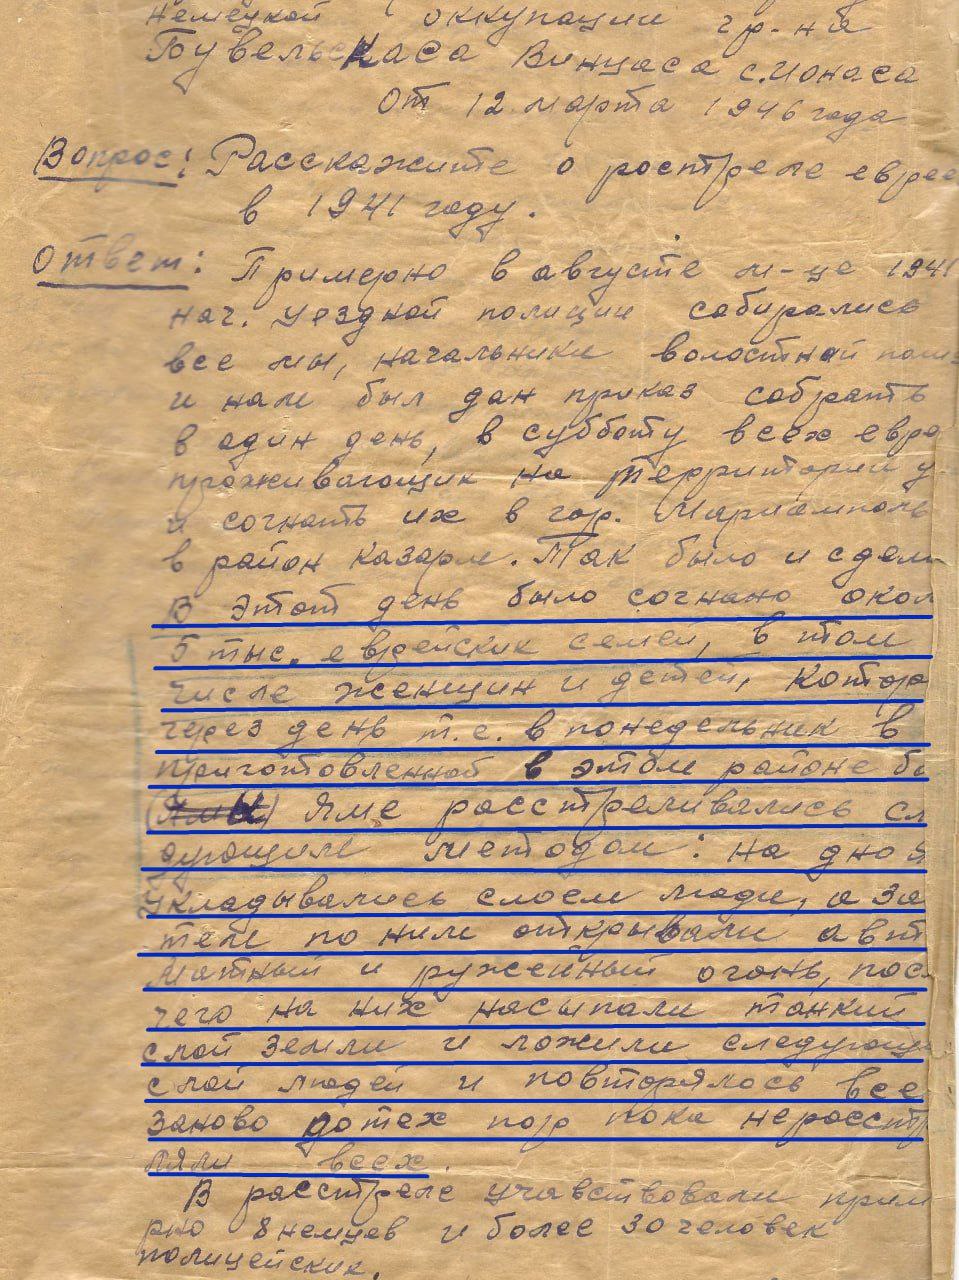 немецкой оккупации гр-на
Бувельскаса Винцаса с. Ионаса
от 12 марта 1946 года
Вопрос: Расскажите о росстреле еврее
в 1941 году.
Ответ: Примерно в августе м-це 1941
нач. уездной полиции собирались
все мы, начальники волостной поли
и нам был дан приказ собрать
в один день, в субботу всех евре
проживающик на территории у
и согнать их в гор. Мариамполь
в район казарм. Так было и сдела
В этот день было согнано окол
5 тыс. еврейских семей, в том
числе женщин и детей, котор
через день т.е. в понедельник в
приготовленной в этом районе бо
(ямы) яме расстреливались сл
дующим методом: на дно я
укладывались слоем люди, а за
тем по ним открывали авт
матный и ружейный огонь, пос
чего на них насыпали тонкий
слой земли и ложили следующи
слой людей и повторялось все
заново дотех пор пока нерасстр
ляли всех.
В расстреле учавствовали прим
рно 8 немцев и более 30 человек
полицейских.